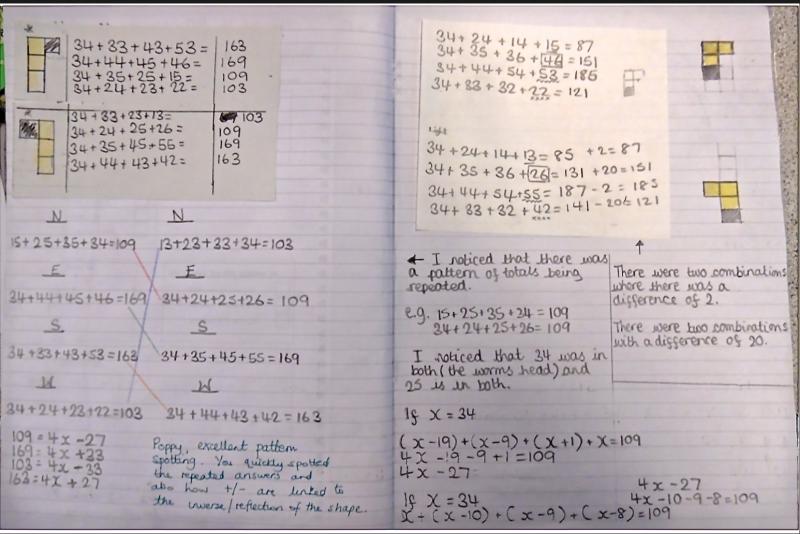 34+33+43+53= 163
34+44+45+46= 169
34+35+25+15= 109
34+24+23+22= 103
34+33+23+13= 103
34+24+25+26= 109
34+35+45+55= 169
34+44+43+42= 163
N N
15+25+35+34=109 13+23+33+34=103
E E
34+44+45+46=169 34+24+25+26= 109
S S
34+33+43+53=163 34+35+45+55=169
W W
34+24+23+22=103 34+44+43+42=163
109=4x-27
169=4x+33
103=4x-33
163=4x+27
Poppy, excellent pattern
spotting. You quickly spotted
the repeated answers and
also how +/- are linked to
the inverse/reflection of the shape.
34+24+14+15=87
34+35+36+46=151
34+44+54+53=185
34+33+32+22=121
34+24+14+13=85 +2=87
34+35+36+26=131 +20=151
34+44+54+55=187-2=185
34+33+32+42=141-20=121
← I noticed that there was
a pattern of totals being
repeated.
e.g. 15+25+35+34=109
34+24+25+26=109
I noticed that 34 was in
both (the worms head) and
25 is in both.
There were two combinations
where there was a
difference of 2.
There were two combinations
with a difference of 20.
If x=34
(x-19)+(x-9)+(x+1)+x=109
4x-19-9+1=109
4x-27
If x=34
x+(x-10)+(x-9)+(x-8)=109
4x-27
4x-10-9-8=109